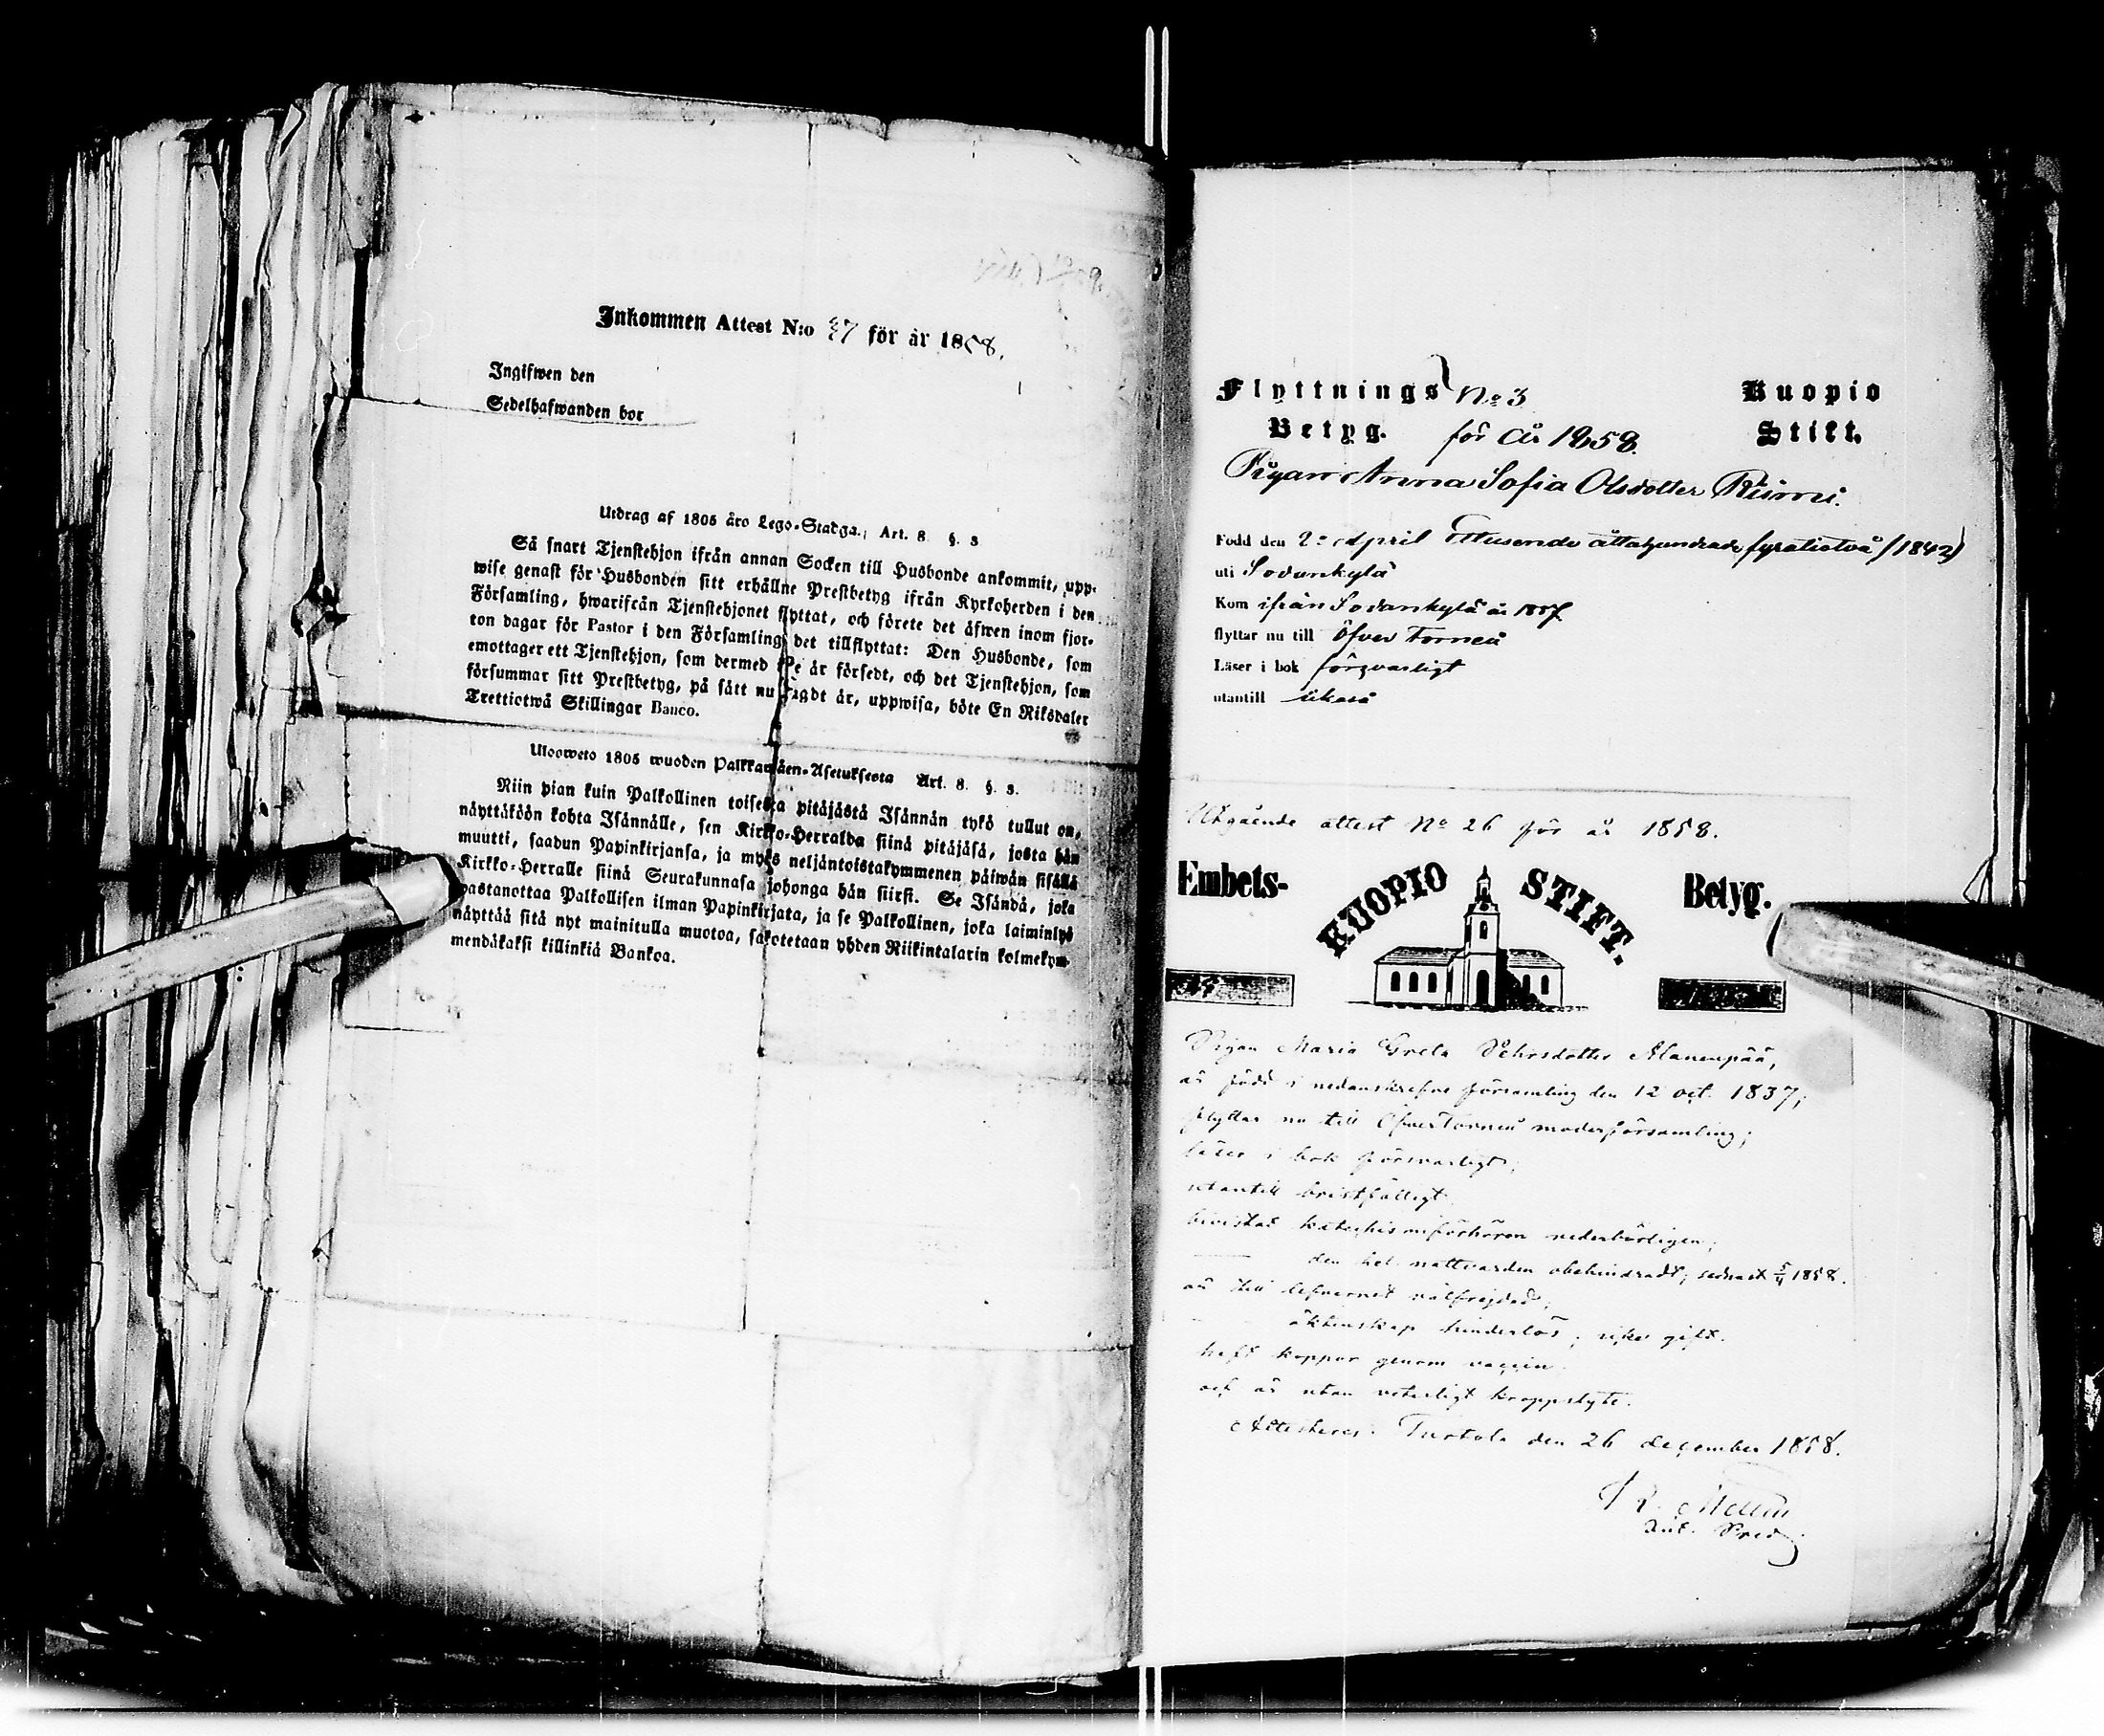 Inkommen Attest N:o 27 för år 1858.
Ingifwen den
Sedelhafwanden bor
Utdrag af 1805 års Lego-Stadga, Art. 8 §. 3
Så snart Tjenstehjon ifrån annan Socken till Husbonde ankommit, upp-
wise genast för Husbonden sitt erhållne Prestbetyg ifrån Kyrkoherden i den
Församling, hwarifrån Tjenstehjonet flyttat, och förete det äfwen inom fjor-
ton dagar för Pastor i den Församling det tillflyttat: Den Husbonde, som
emottager ett Tjenstehjon, som dermed ej är försedt, och det Tjenstehjon, som
försummar sitt Prestbetyg, på sätt nu sagdt är, uppwisa, böte En Riksdaler
Trettiotwå Skillingar Banco.
Ulosweto 1805 wuoden Palkkawäen-Asetuksesta Art. 8. §. 3.
Niin pian kuin Palkollinen toisesta pitäjästä Isännän tykö tullut on,
näyttäköön kohta Isännälle, sen Kirkko-Herralda siinä pitäjäsä, josta hän
muutti, saadun Papinkirjansa, ja myös neljäntoistakymmenen päiwän sisällä
Kirkko-Herralle siinä Seurakunnasa johonga hän siirsi. Se Isändä, joka
wastanottaa Palkollisen ilman Papinkirjata, ja se Palkollinen, joka laiminlyö
näyttää sitä nyt mainitulla muotoa, sakotetaan yhden Riikintalarin kolmekym-
mendäkaksi killinkiä Bankoa.
Flyttnings No 3 Kuopio
Betyg. för år 1858. Stift.
Pigan Anna Sofia Olsdotter
Född den 2: April Ettusende åttahundrade fyratiotvå (1842)
uti Sodankylä
Kom ifrån Sodankylä år 1857
flyttar nu till Öfver Torneå
Läser i bok försvarligt
utantill
Utgående attest No 26 för år 1858.
Embets- KUOPIO STIFT. Betyg.
Pigan Maria Greta Pehrsdotter Alanenpää,
är född i nedanskrefne församling den 12 oct. 1837;
flyttar nu till ÖfverTorneå moderförsamling;
läser i bok försvarligt;
utantill bristfälligt
bivistat katechismiförhören vederbörligen;
den hel. nattvarden obehindradt; sednast 5/4 1858.
är till lefvernet välfrejdad;
äktenskap hinderlös; icke gift.
haft koppor genom vaccin
och är utan veterligt kroppslyte.
Attesteras. Turtola den 26 december 1858.